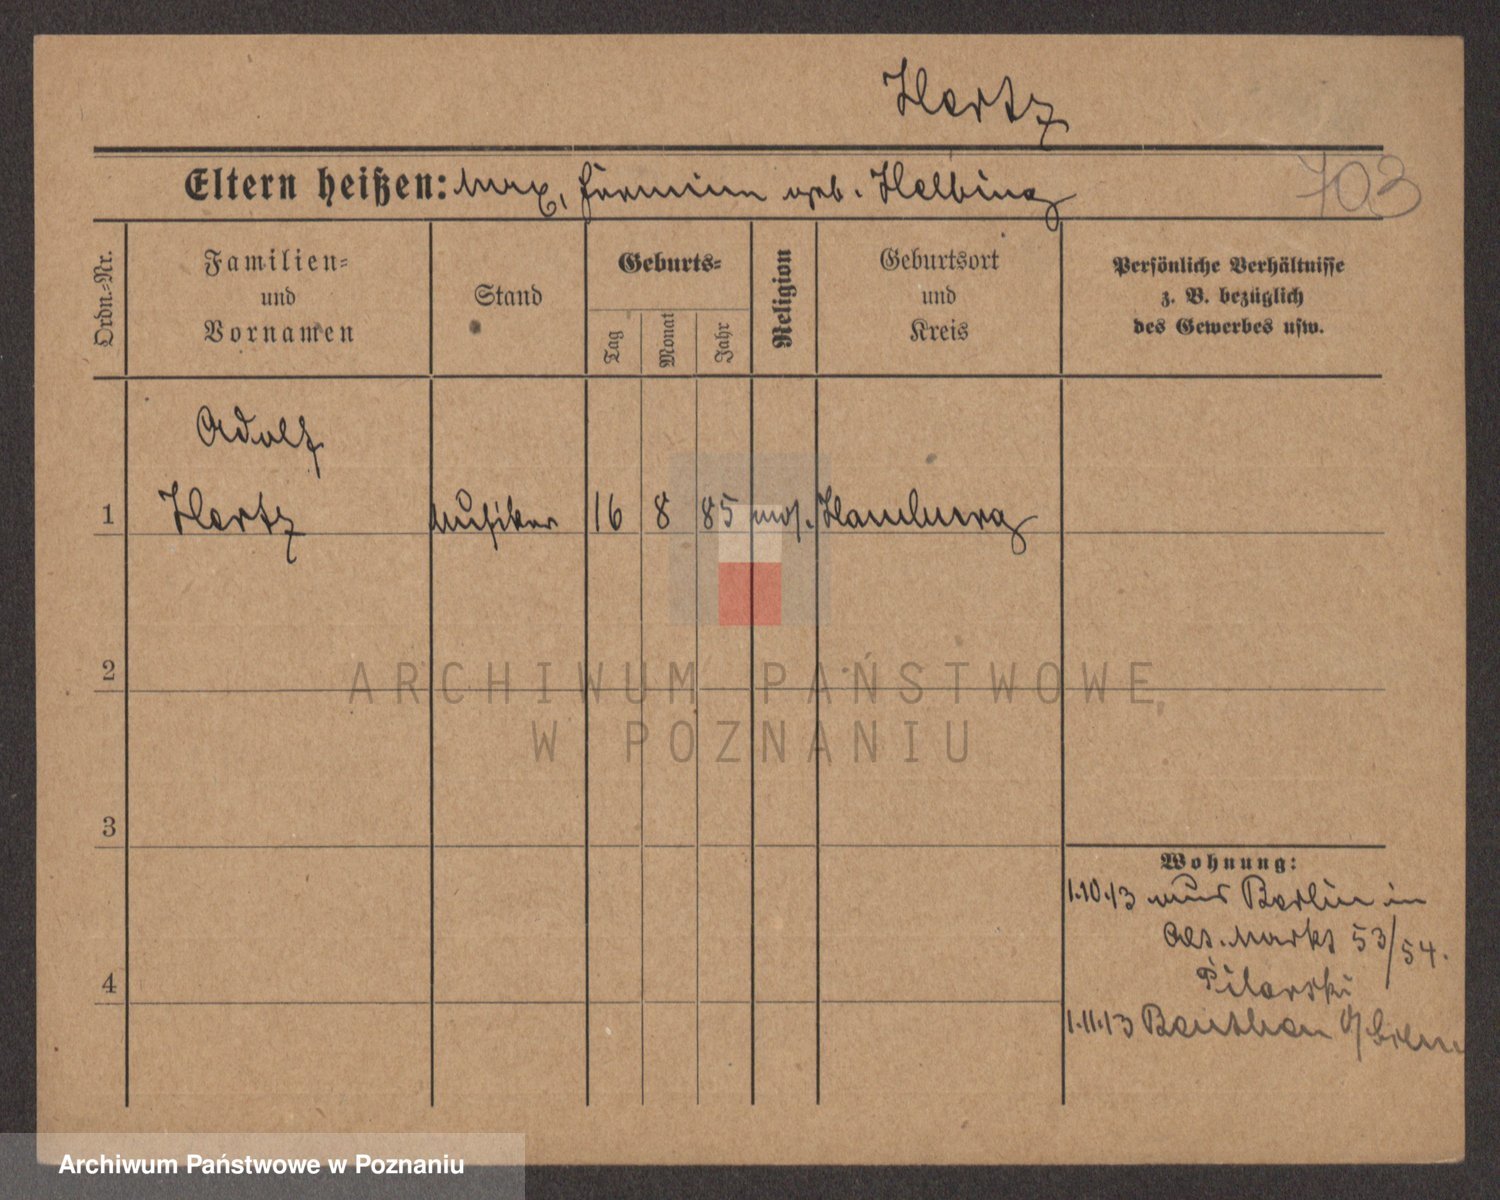 Hertz
703
Eltern heißen: Max, Fannÿ geb. Helbing
Ordn.-Nr.
Familien-
und
Vornamen
Stand
Geburts-
Tag
Monat
Jahr
Religion
Geburtsort
und
Kreis
Persönliche Verhältnisse
z. B. bezüglich
des Gewerbes usw.
Adolf
1 Hertz Musiker 16 8 85 mos. Hamburg
2
ARCHIWUM PAŃSTWOWE
W POZNANIU
3
Wohnung:
1.10.13 aus Berlin in
Alt. Markt 53/54.
Pilarski
4
1.11.13 Beuthen
Archiwum Państwowe w Poznaniu